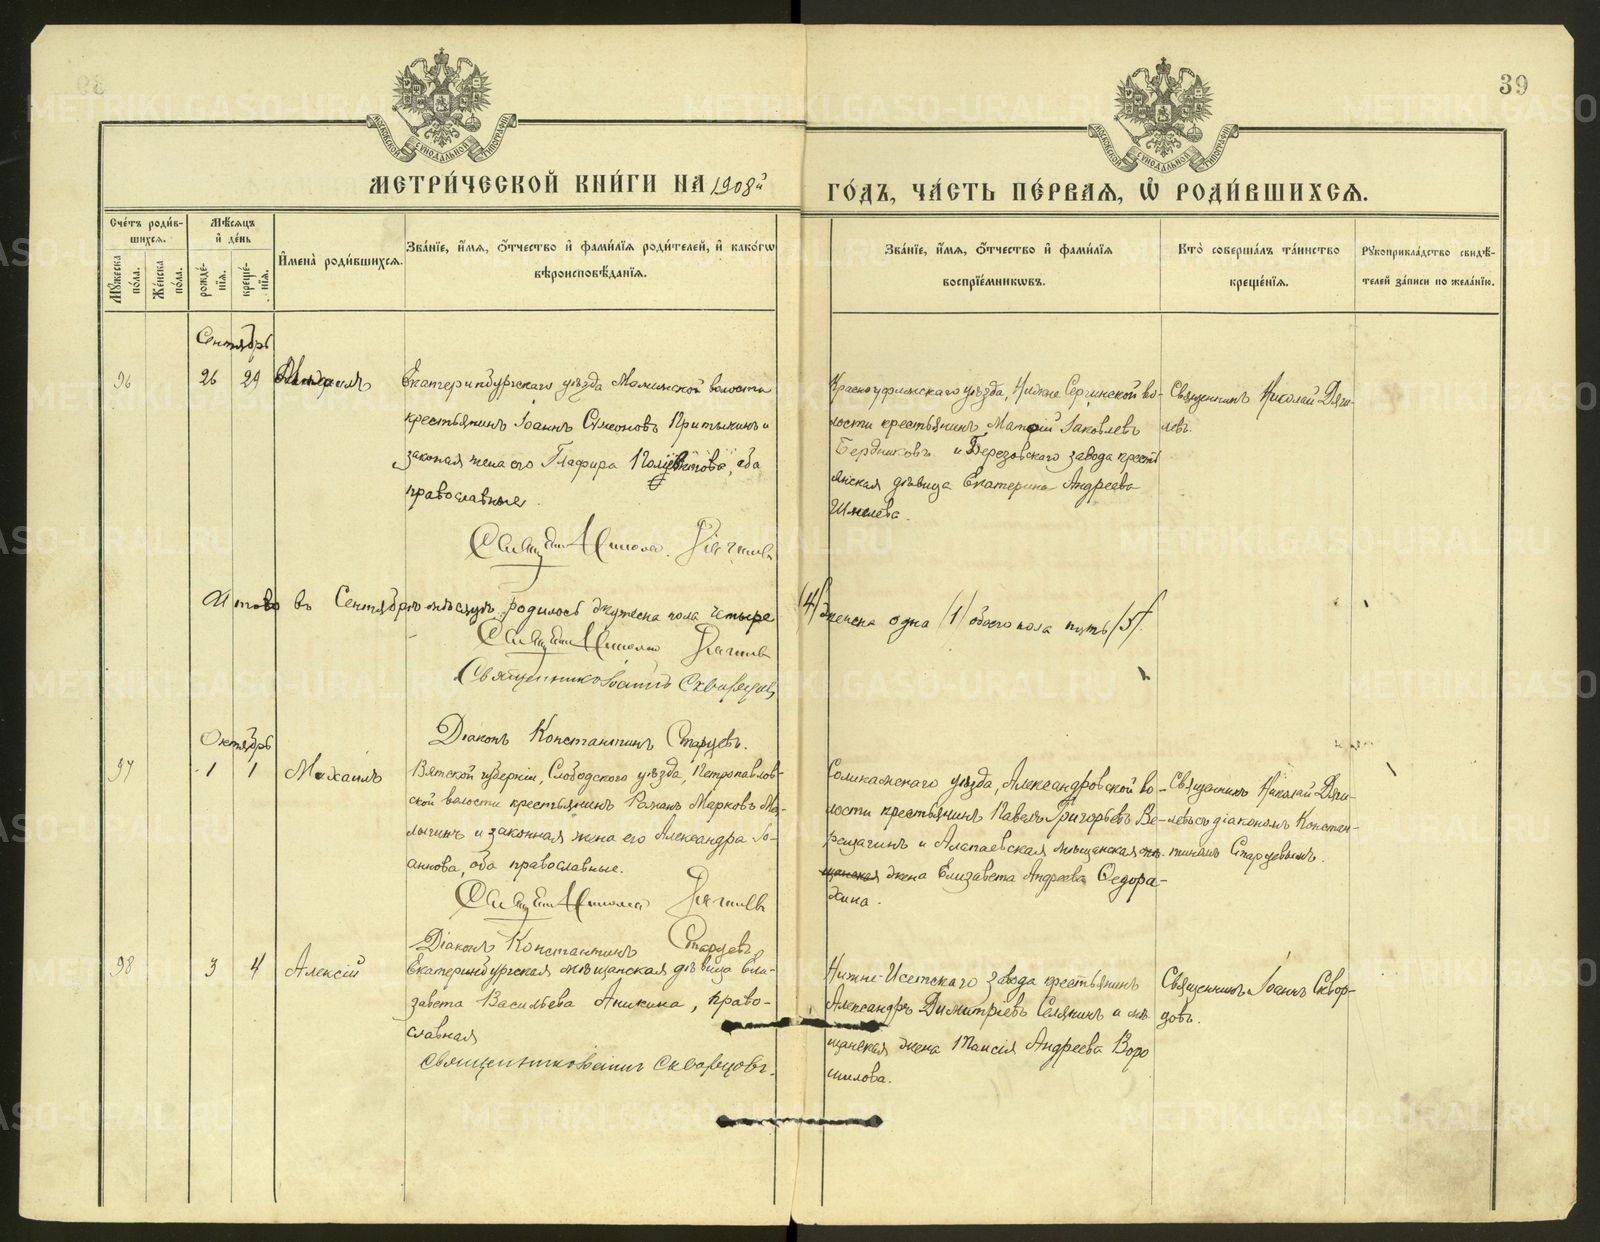 39
МОСКОВСКОЙ СѴНОДАЛЬНОЙ ТИПОГРАФІИ
МОСКОВСКОЙ СѴНОДАЛЬНОЙ ТИПОГРАФІИ
МЕТРИ́ЧЕСКОЙ КНИ́ГИ НА 1908й
ГО́ДЪ, ЧА́СТЬ ПЕ́РВАЯ, Ѽ РОДИ́ВШИХСЯ.
Сче́тъ роди́в-
шихся.
Мѣ́сяцъ
и҆ де́нь
И҆мена̀ роди́вшихся.
Зва́нїе, и҆́мя, ѻ҆́тчество и҆ фами́лїя роди́телей, и҆ како́гѡ
вѣроисповѣ́данїя.
Мꙋ́жеска
по́ла.
Же́нска
по́ла.
рожде́-
нїя.
креще́-
нїя.
Зва́нїе, и҆́мя, ѻ҆́тчество и҆ фами́лїя
воспрїе́мникѡвъ.
Кто̀ соверша́лъ та́инство
креще́нїя.
Рꙋкоприкла́дство свидѣ́-
телей за́писи по жела́нїю.
Сентябрь
96 26 29
Екатеринбургскаго уѣзда Маминской волости
крестьянинъ Іоаннъ Симеоновъ Притыкинъ и
законная жена его Глафира Полуевктова, оба
православные.
Священникъ Николай Дягилевъ
Красноуфимскаго уѣзда, Нижне Сергинской во-
лости крестьянинъ Матѳій Іаковлевъ
Бердниковъ и Березовскаго завода кресть
янская дѣвица Екатерина Андреева
Шмелева.
Священникъ Николай Дяги-
левъ.
Итого въ Сентябрѣ мѣсяцѣ родилось мужеска пола четыре
/4/ женска одна /1/ обоего пола пять /5/.
Священникъ Николай Дягилевъ
Священникъ Іоаннъ Скворцовъ
Діаконъ Константинъ Старцевъ.
Октябрь
97 1 1 Михаилъ
Вятской губерніи, Слободского уѣзда, Петропавлов-
ской волости крестьянинъ Романъ Марковъ Ма-
лыгинъ и законная жена его Александра Іо-
аннова, оба православные.
Священникъ Николай Дягилевъ
Діаконъ Константинъ Старцевъ
Соликамскаго уѣзда, Александровской во-
лости крестьянинъ Павелъ Григорьевъ Ве-
рещагинъ и Алапаевская мѣщанская
жена Елизавета Андреева Ѳедора-
хина.
Священникъ Николай Дяги-
левъ съ діакономъ Констан-
тиномъ Старцевымъ.
98 3 4 Алексій
Екатеринбургская мѣщанская дѣвица Ели-
завета Васильева Аникина, право-
славная
Священникъ Іоаннъ Скворцовъ.
Нижне-Исетскаго завода крестьянинъ
Александръ Димитріевъ Селянинъ и мѣ
щанская жена Таисія Андреева Воро
шилова.
Священникъ Іоаннъ Сквор-
цовъ.